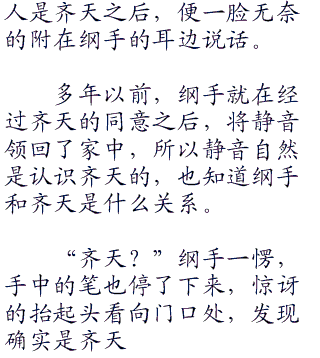 人是齐天之后，便一脸无奈
的附在纲手的耳边说话。
多年以前，纲手就在经
过齐天的同意之后，将静音
领回了家中，所以静音自然
是认识齐天的，也知道纲手
和齐天是什么关系。
“齐天？”纲手一愣，
手中的笔也停了下来，惊讶
的抬起头看向门口处，发现
确实是齐天